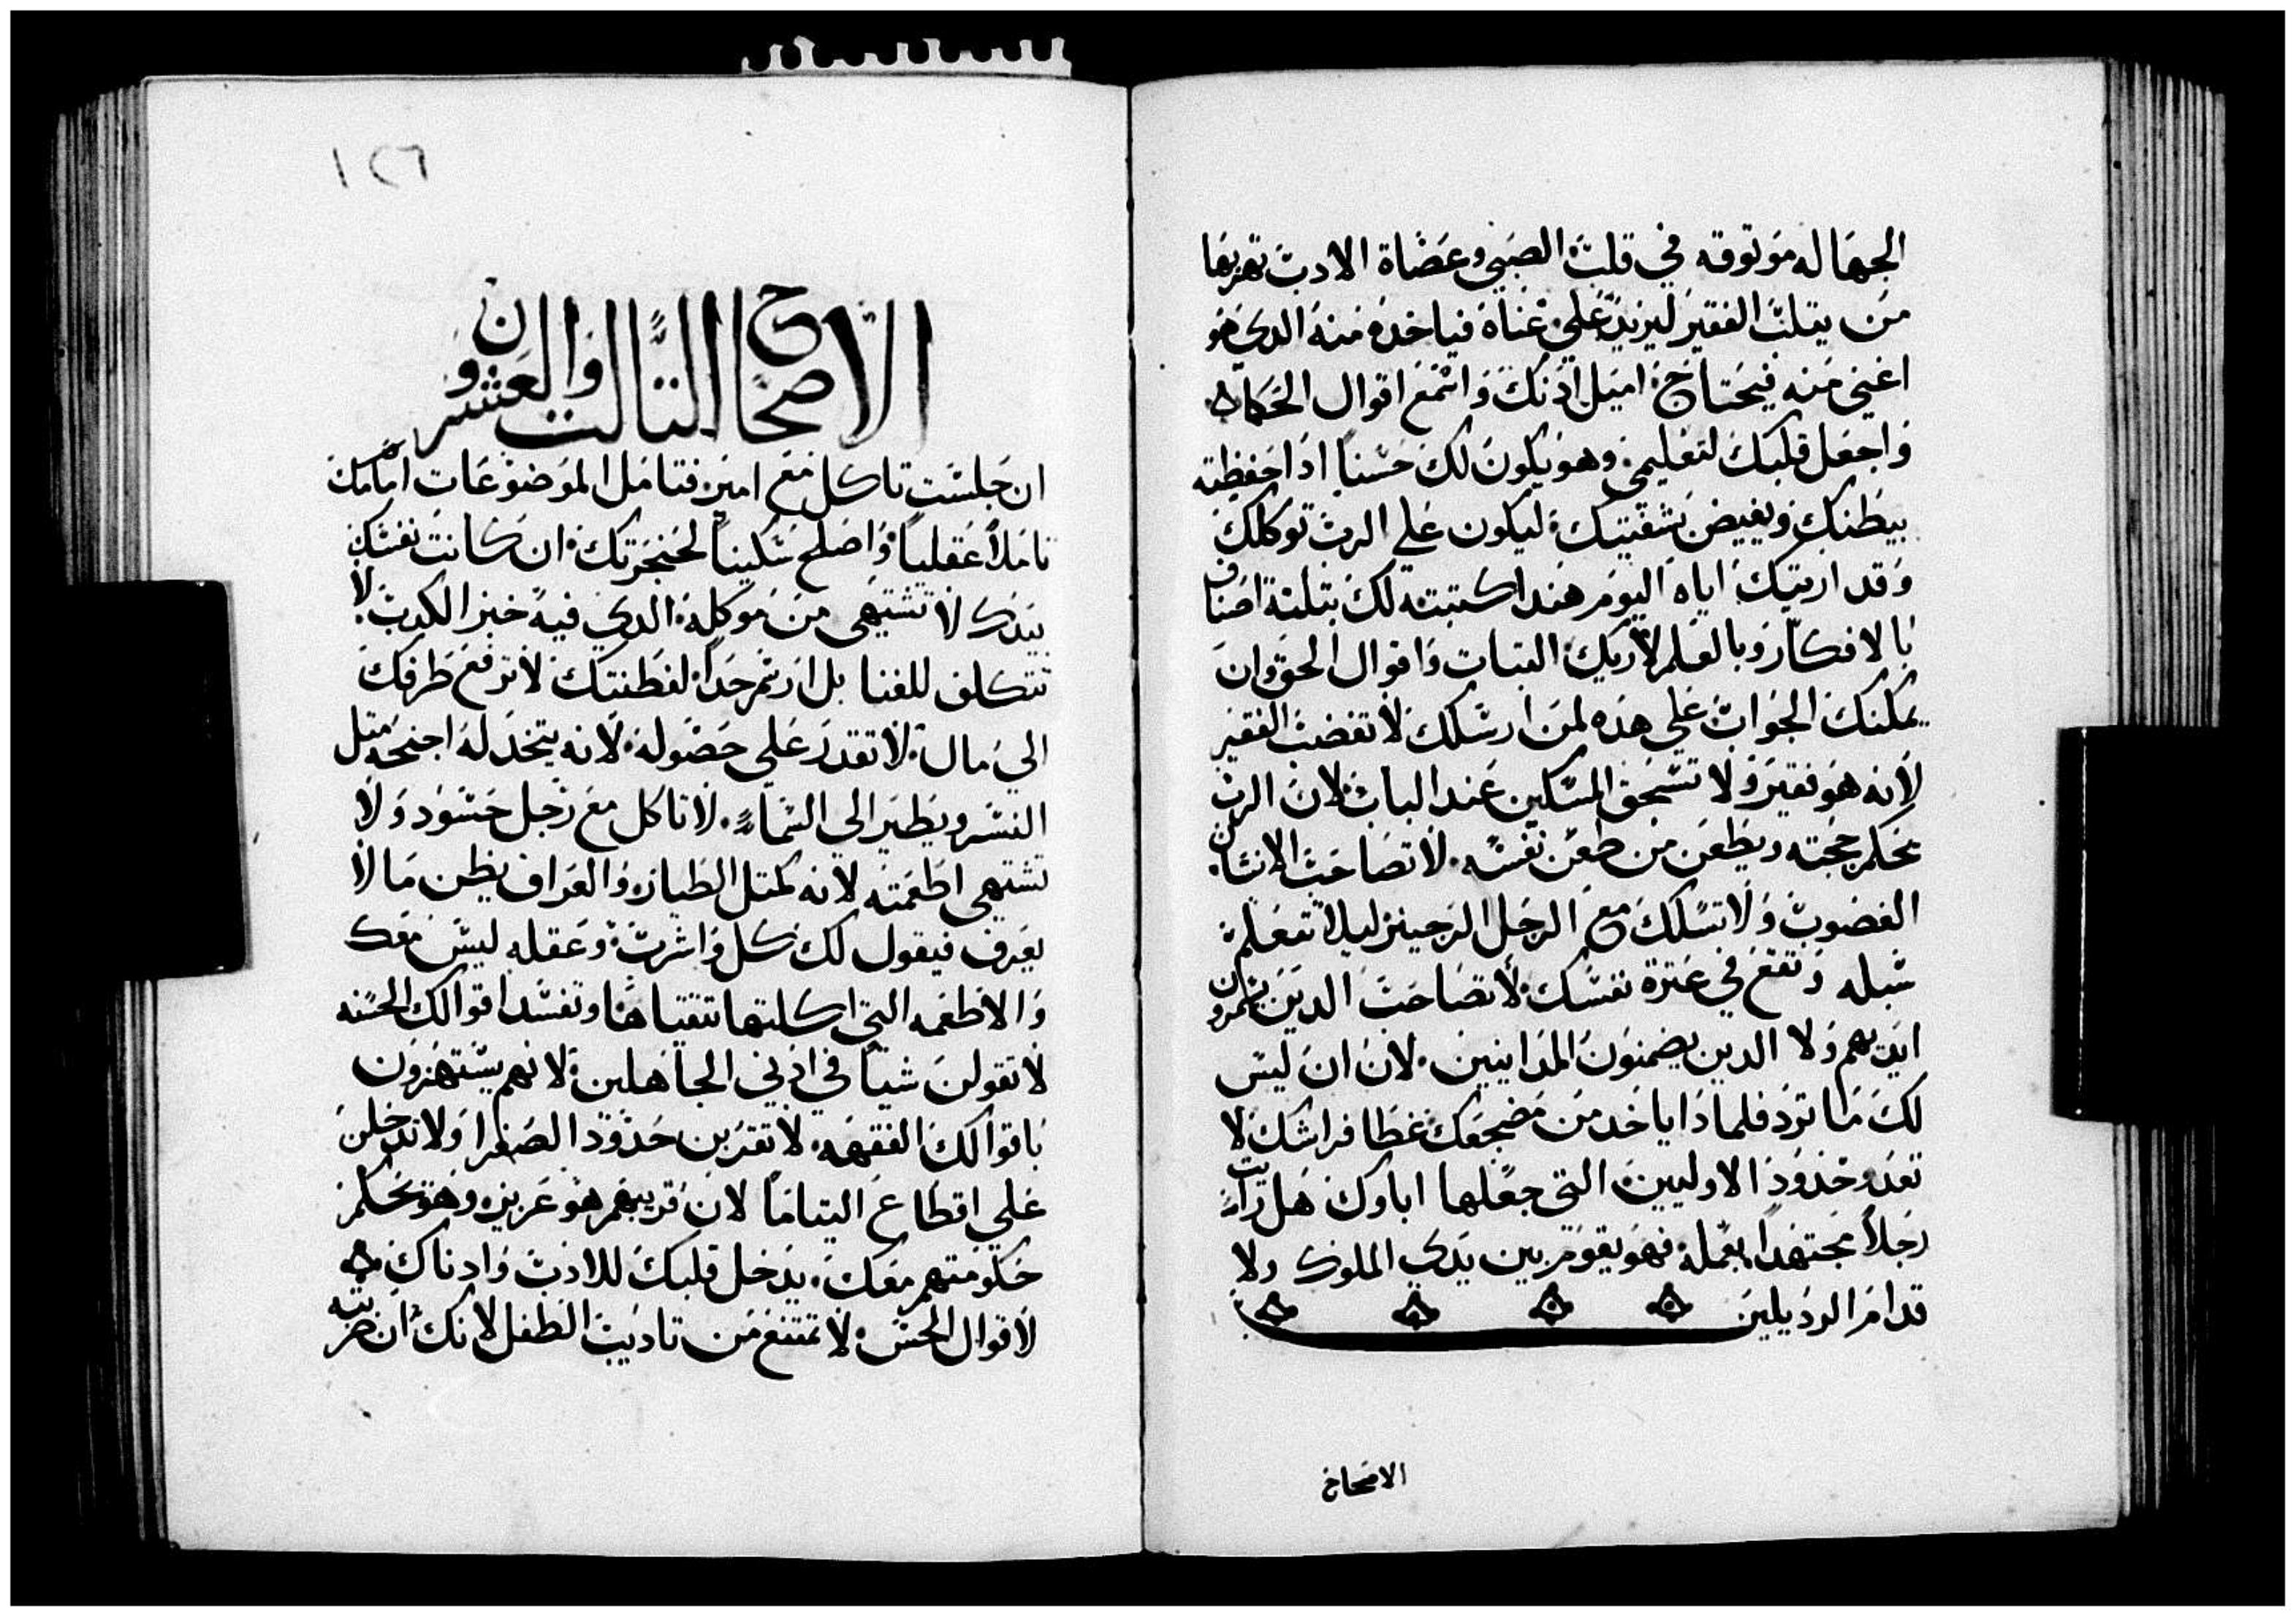 الجهاله موتوقه في قلب الصبي وعصاة الادب تهربها
من يقلب الفقير ليزيد علي غناه فياخده منه الدي هو
اغني منه فيحتاج. اميل اذنك واسمع اقوال الحكماء
واجعل قلبك لتعليمي. وهو يكون لك حسنا اذا حفظته
ببطنك ويفيض بشفتيك. ليكون علي الرب توكلك
وقد اريتك اياه اليوم هندا كتبته لك بتلتة اصناف
بالافكار وبالعلم لاريك التبات واقوال الحق وان
يمكنك الجواب علي هده لمن ارسلك لا تغضب الفقير
لانه هو فقير ولا تسحق المسكين عند الباب لان الرب
يحكم حجته ويطعن من طعن نفسه. لا تصاحب الانسان
الغضوب ولا تسلك مع الرجل الرجينز ليلا تتعلم
سبله وتقع في عترة نفسك. لا تصاحب الدين يتمرون
ايديهم ولا الدين يضمنون المداينين. لان ان ليس
لك ما ترد فلمادا ياخد من مضجعك غطا فراشك لا
تعدو حدود الاوليين التي جعلها اباوك هل رايت
رجلا مجتهدا بعمله فهو يقوم بين يدي الملوك ولا
قدام الرديلين
الاصحاح
١٢٦
الاصحاح التالت والعشرون
ان جلست تاكل مع امير فتامل الموضوعات امامك
تاملا عقليا. واصلح سكينا لحنجرتك. ان كانت نفسك
بيدك لا تشتهي من موكله. الدي فيه خبز الكدب. لا
تتكلف للغنا بل ارسم حدا لفطنتك لا ترفع طرفك
الي مال لا تقدر علي حصوله. لانه يتخد له اجنحه متل
النسر ويطير الي السماء. لا تاكل مع رجل حسود ولا
تشتهي اطعمته لانه كمتل الطيازه والعراف يظن ما لا
يعرف فيقول لك كل واشرب. وعقله ليس معك
والاطعمه التي اكلتها تتقياها. وتفسد اقوالك الحسنه
لا تقولن شيا في اذني الجاهلين. لانهم يستهزون
باقوالك الفقهه. لا تقتربن حدود الصغرا ولا تدخلن
علي اقطاع اليتاما لان قريبهم هو عزيز. وهو يحكم
حكومتهم معك. يدخل قلبك للادب وادناك
لاقوال الحس. لا تمتنع من تاديب الطفل لانك ان ضربته